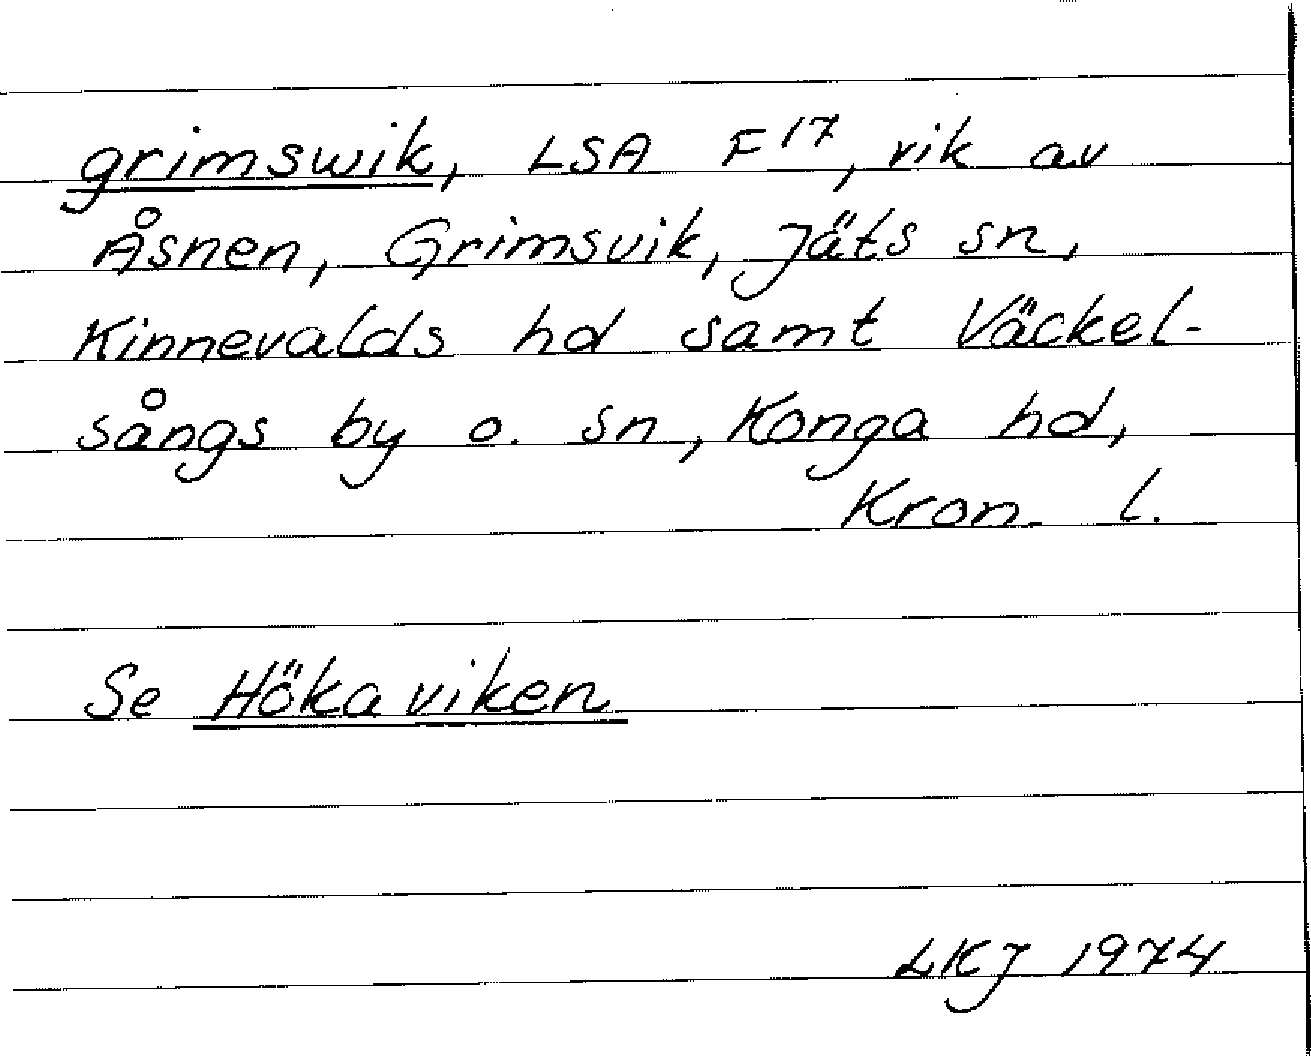 grimswik, LSA F17, vik av
Åsnen, Grimsvik, Jäts sn,
Kinnevalds hd samt Väckel-
sångs by o. sn, Konga hd,
Kron. l.
Se Hökaviken
LKJ 1974